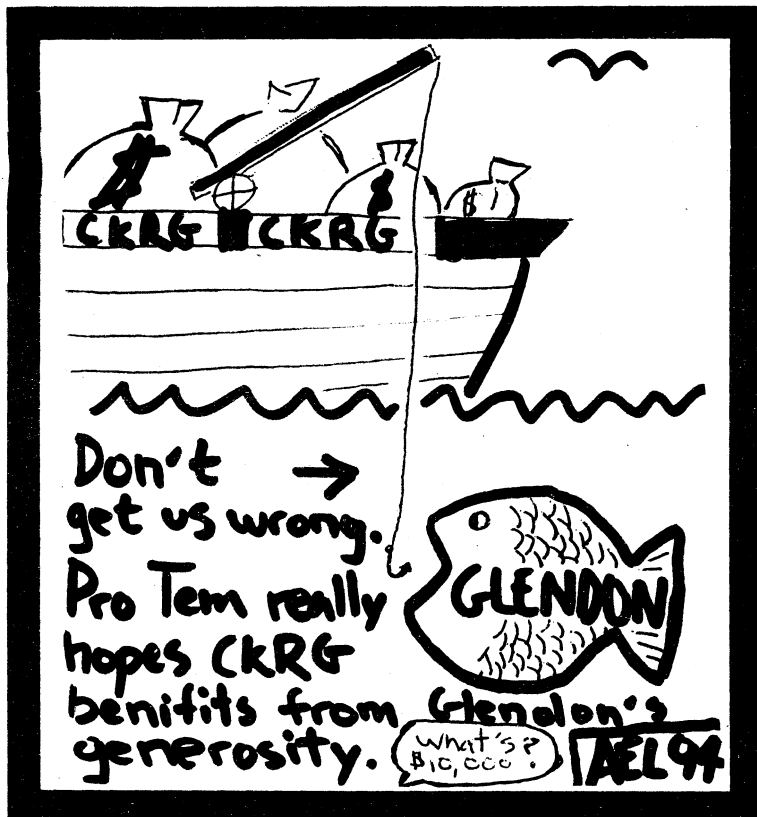 $
$
$
CKRG CKRG
Don't
get us wrong.
Pro Tem really
hopes CKRG
benifits from Glendon's
generosity.
GLENDON
What's?
$10,000?
AEL 94